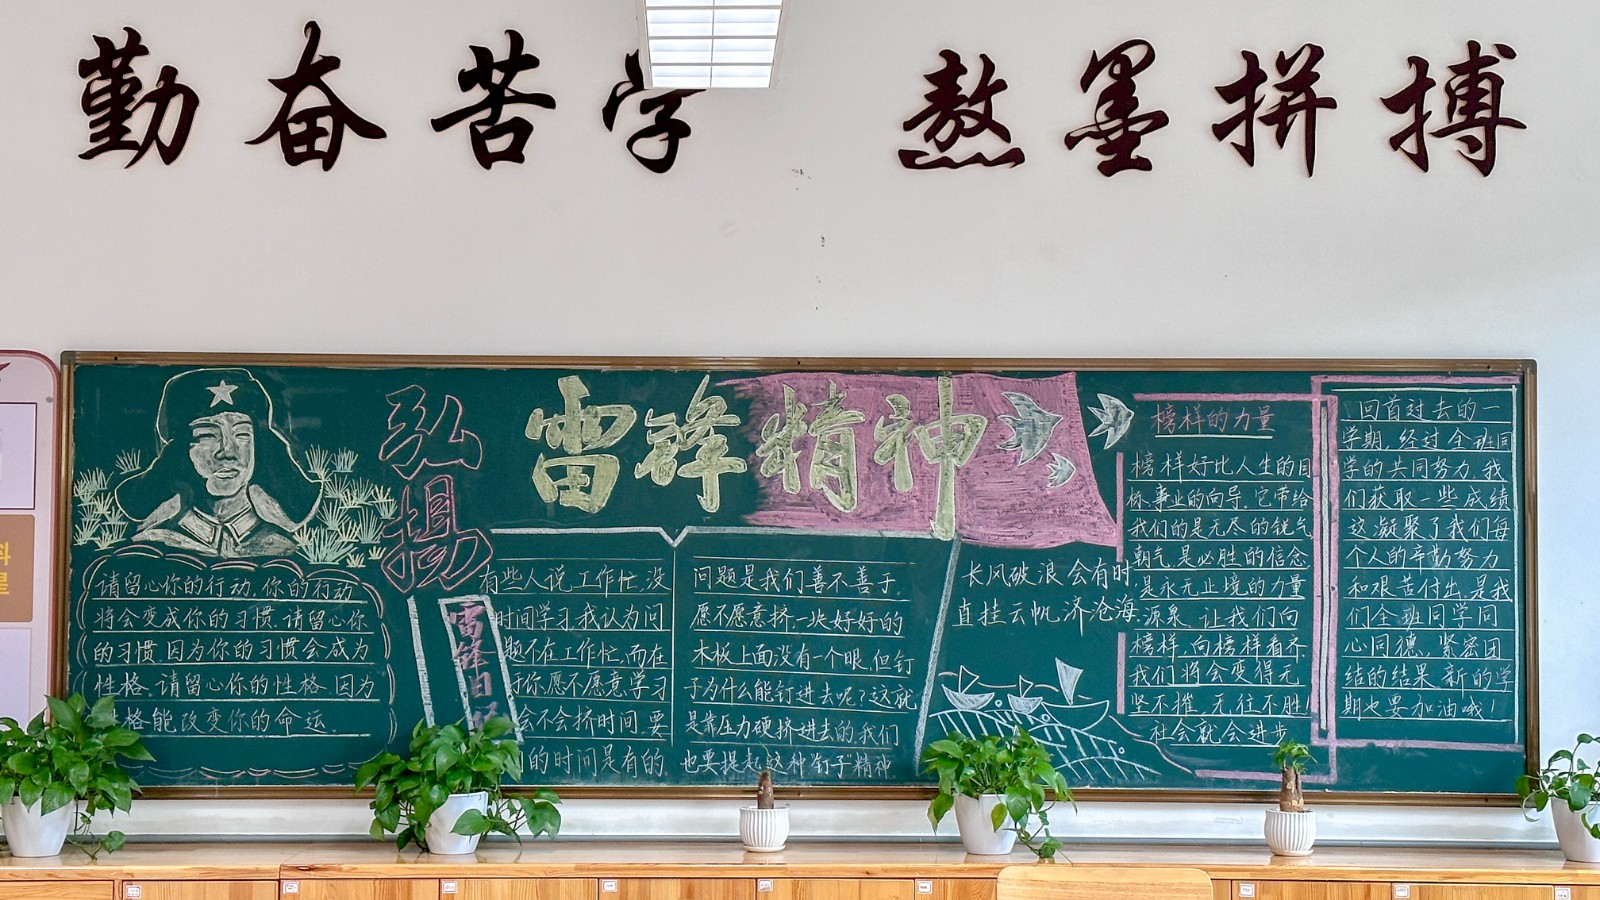 勤奋苦学 熬墨拼搏
弘扬
雷锋精神
请留心你的行动,你的行动
将会变成你的习惯.请留心你
的习惯.因为你的习惯会成为
性格.请留心你的性格.因为
性格能改变你的命运.
雷锋日记
有些人说工作忙,没
时间学习.我认为问
题不在工作忙,而在
你愿不愿意学习
会不会挤时间.要
的时间是有的.
问题是我们善不善于,
愿不愿意挤.一块好好的
木板上面没有一个眼.但钉
子为什么能钉进去呢?这就
是靠压力硬挤进去的.我们
也要提起这种"钉子"精神
长风破浪会有时,
直挂云帆济沧海.
榜样的力量
榜样好比人生的目
标.事业的向导.它带给
我们的是无尽的锐气
朝气,是必胜的信念
是永无止境的力量
源泉.让我们向
榜样,向榜样看齐
我们将会变得无
坚不摧.无往不胜!
社会就会进步
回首过去的一
学期,经过全班同
学的共同努力,我
们获取一些成绩
这凝聚了我们每
个人的辛勤努力
和艰苦付出,是我
们全班同学同
心同德,紧密团
结的结果.新的学
期也要加油哦!